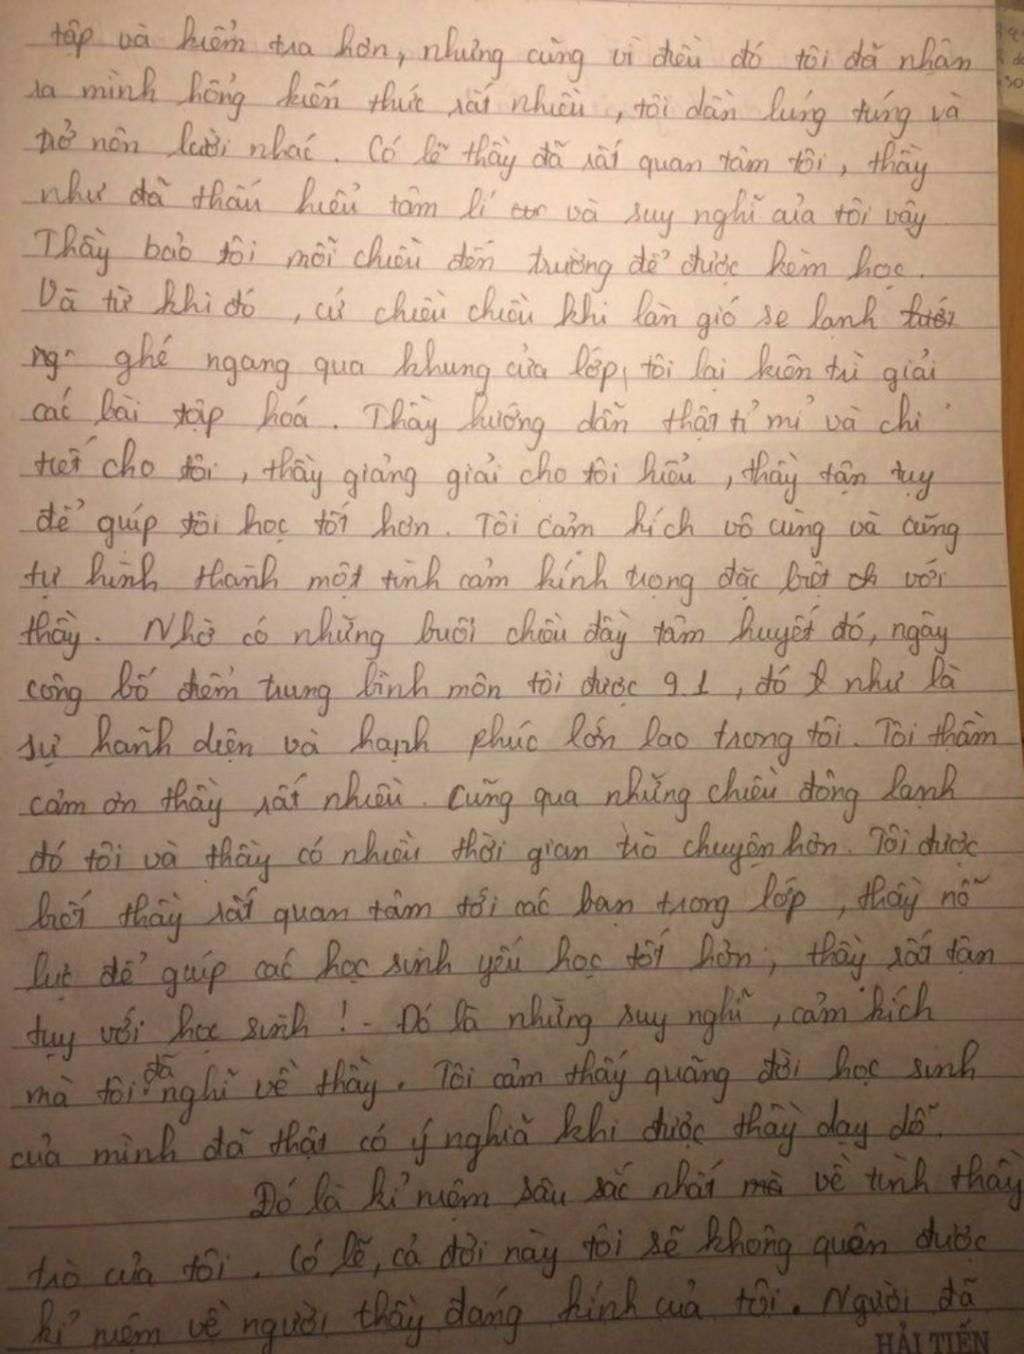 tập và kiểm tra hơn, nhưng cũng vì điều đó tôi đã nhận
ra mình hổng kiến thức rất nhiều, tôi dần lúng túng và
trở nên lười nhác. Có lẽ thầy đã rất quan tâm tôi, thầy
như đã thấu hiểu tâm lí và suy nghĩ của tôi vậy
Thầy bảo tôi mỗi chiều đến trường để được kèm học.
Và từ khi đó, cứ chiều chiều khi làn gió se lạnh
ghé ngang qua khung cửa lớp, tôi lại kiên trì giải
các bài tập hoá. Thầy hướng dẫn thật tỉ mỉ và chi
tiết cho tôi, thầy giảng giải cho tôi hiểu, thầy tận tụy
để giúp tôi học tốt hơn. Tôi cảm kích vô cùng và cũng
tự hình thành một tình cảm kính trọng đặc biệt với
thầy. Nhờ có những buổi chiều đầy tâm huyết đó, ngày
công bố điểm trung bình môn tôi được 9.1, đó như là
sự hãnh diện và hạnh phúc lớn lao trong tôi. Tôi thầm
cảm ơn thầy rất nhiều. Cũng qua những chiều đông lạnh
đó tôi và thầy có nhiều thời gian trò chuyện hơn. Tôi được
biết thầy rất quan tâm tới các bạn trong lớp, thầy nỗ
lực để giúp các học sinh yếu học tốt hơn, thầy rất tận
tụy với học sinh! - Đó là những suy nghĩ, cảm kích
mà tôi đã nghĩ về thầy. Tôi cảm thấy quãng đời học sinh
của mình đã thật có ý nghĩa khi được thầy dạy dỗ.
Đó là kỉ niệm sâu sắc nhất về tình thầy
trò của tôi. Có lẽ, cả đời này tôi sẽ không quên được
kỉ niệm về người thầy đáng kính của tôi. Người đã
HẢI TIẾN